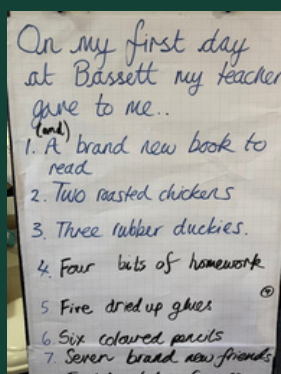 On my first day
at Bassett my teacher
gave to me..
(and)
1. A brand new book to
read
2. Two roasted chickens
3. Three rubber duckies.
4. Four bits of homework
5 Five dried up glues
6. Six coloured pencils
7. Seven brand new friends